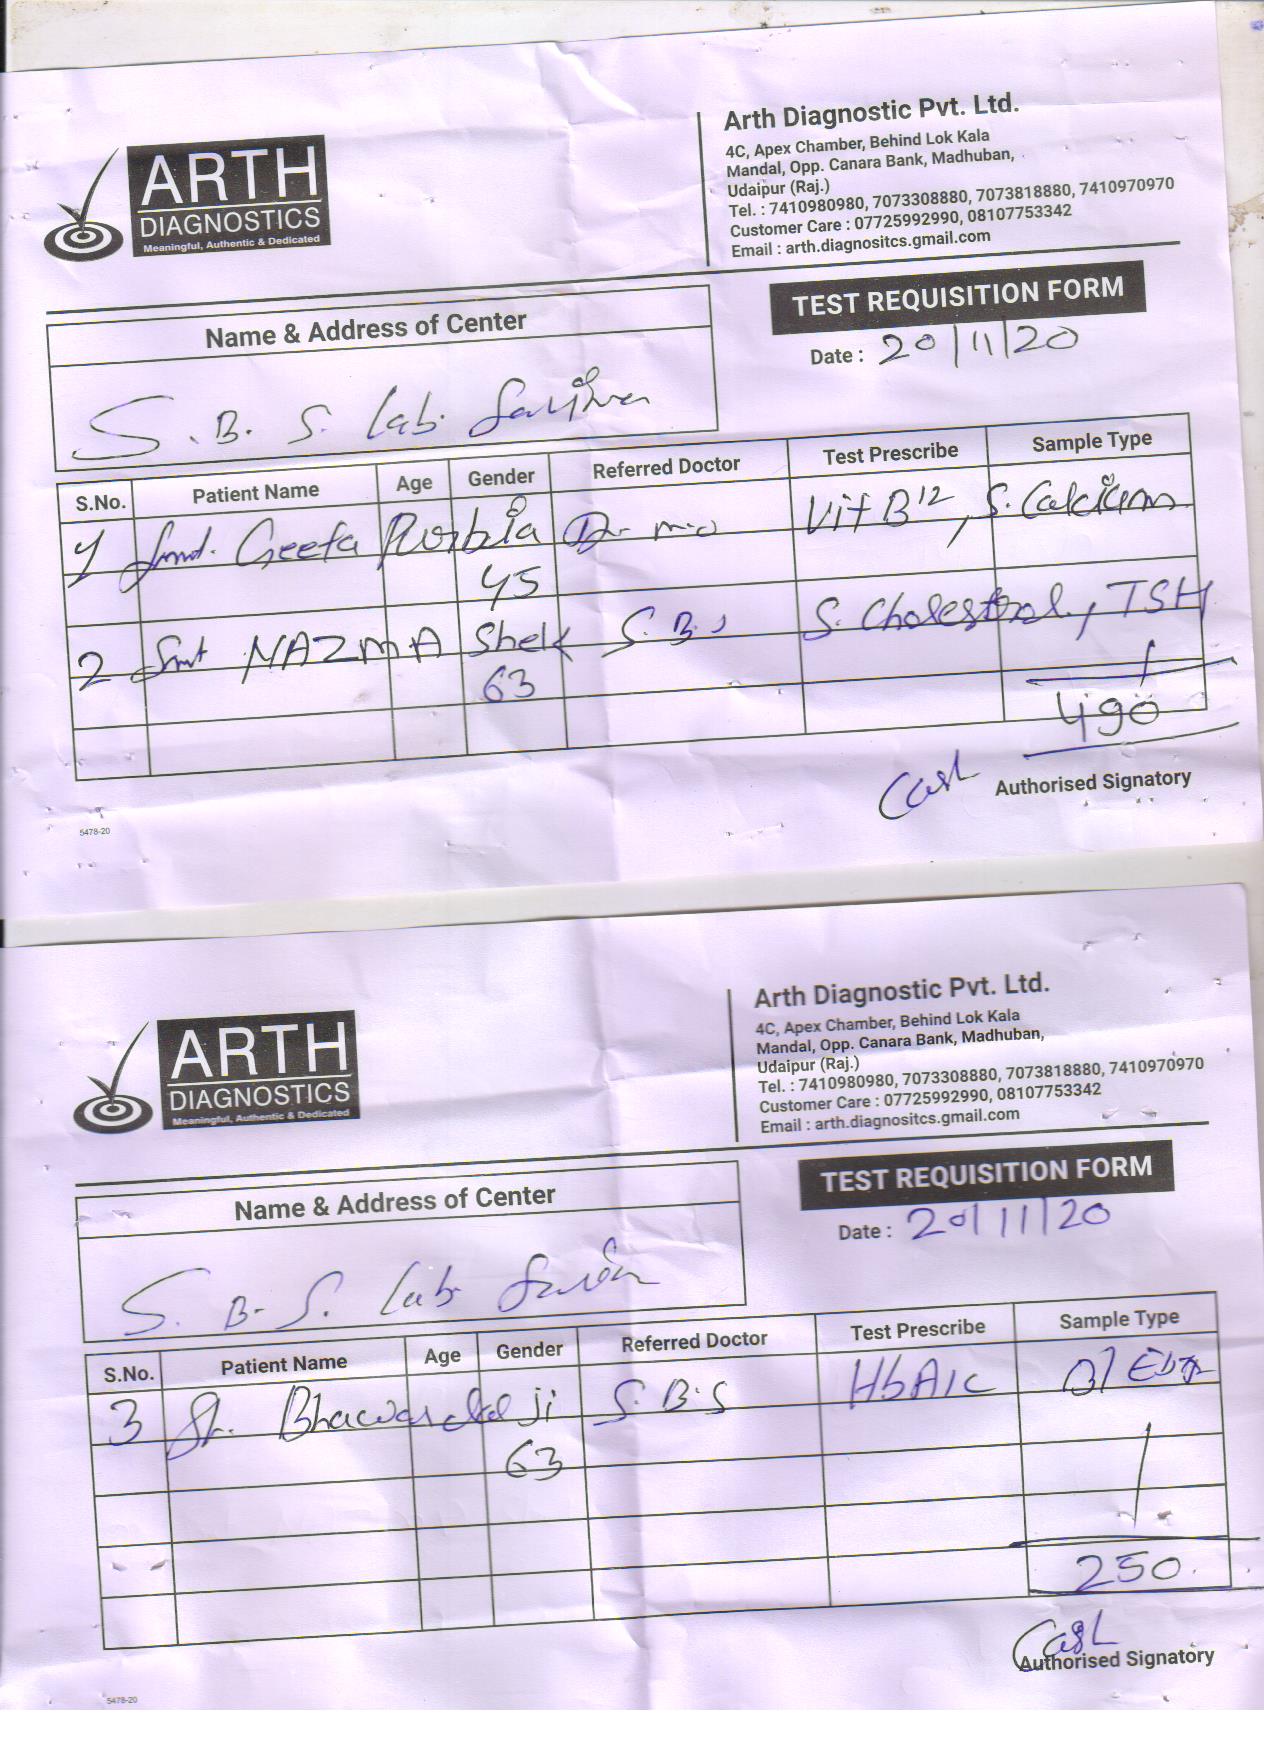 ARTH
DIAGNOSTICS
Meaningful, Authentic & Dedicated
Arth Diagnostic Pvt. Ltd.
4C, Apex Chamber, Behind Lok Kala
Mandal, Opp. Canara Bank, Madhuban,
Udaipur (Raj.)
Tel. : 7410980980, 7073308880, 7073818880, 7410970970
Customer Care : 07725992990, 08107753342
Email : arth.diagnositcs.gmail.com
TEST REQUISITION FORM
Date : 20/11/20
Name & Address of Center
S. B. S. Lab.
S.No. Patient Name Age Gender Referred Doctor Test Prescribe Sample Type
1 Geeta Dr. Vit B12, S. Calcium
45
2 Smt NAZMA Sheik S.B.S S. Cholestrol, TSH
63
490
Cash
Authorised Signatory
5478-20
ARTH
DIAGNOSTICS
Meaningful, Authentic & Dedicated
Arth Diagnostic Pvt. Ltd.
4C, Apex Chamber, Behind Lok Kala
Mandal, Opp. Canara Bank, Madhuban,
Udaipur (Raj.)
Tel. : 7410980980, 7073308880, 7073818880, 7410970970
Customer Care : 07725992990, 08107753342
Email : arth.diagnositcs.gmail.com
TEST REQUISITION FORM
Date : 20/11/20
Name & Address of Center
S. B. S. Lab
S.No. Patient Name Age Gender Referred Doctor Test Prescribe Sample Type
3 Sh. Bhawar lal ji S.B.S HbA1c
63
250
Cash
Authorised Signatory
5478-20